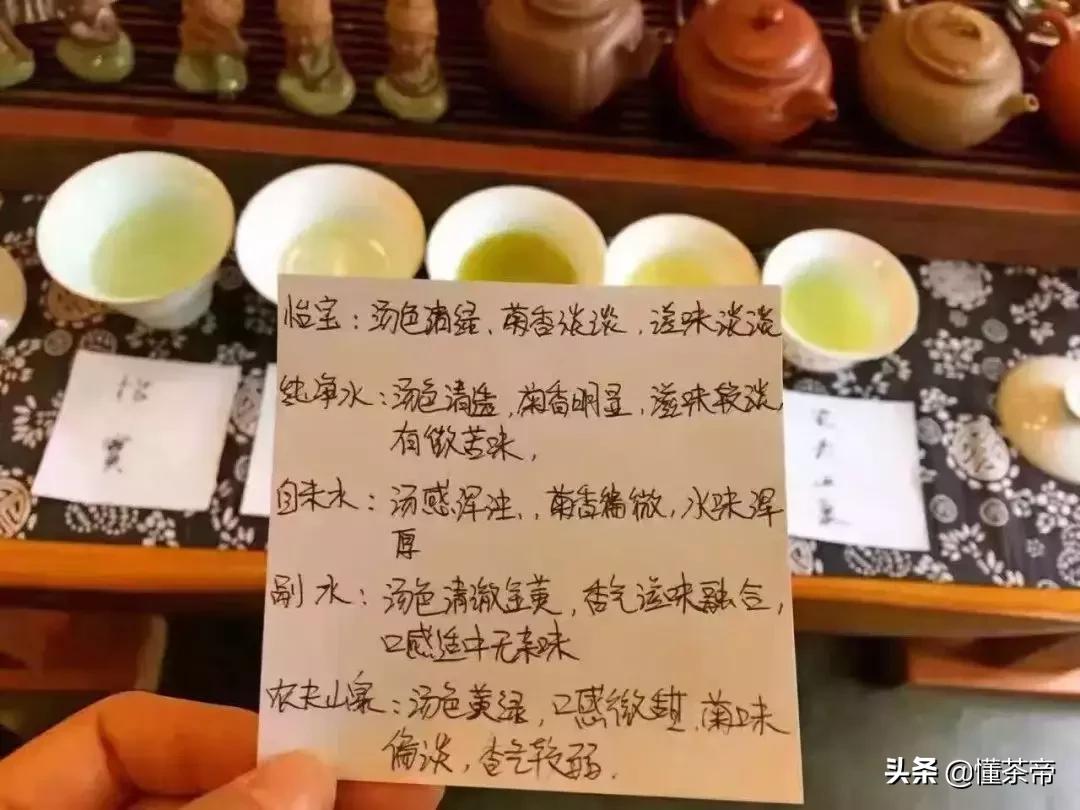 怡宝：汤色清绿、菊香淡淡，滋味淡淡
纯净水：汤色清透，菊香明显，滋味较淡，
有微苦味，
自来水：汤感浑浊，，菊香偏微，水味浑
厚
副水：汤色清澈金黄，香气滋味融合，
口感适中无杂味
农夫山泉：汤色黄绿，口感微甜，菊味
偏淡，香气较弱.
怡
寶
农
夫
山
泉
头条 @懂茶帝